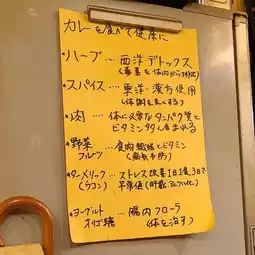 カレーを食べて健康に
・ハーブ … 西洋デトックス
(毒素を体内から排出)
・スパイス … 東洋・漢方使用
(体調を良くする)
・肉 … 体に大切なタンパク質と
ビタミンタケと含まれる
・野菜 … 食物繊維とビタミン
フルーツ (病気予防)
・ターメリック … ストレス改善 1日1食、3日で
(ウコン) 平常値
・ヨーグルト … 腸内フローラ
オリゴ糖 (体を治す)